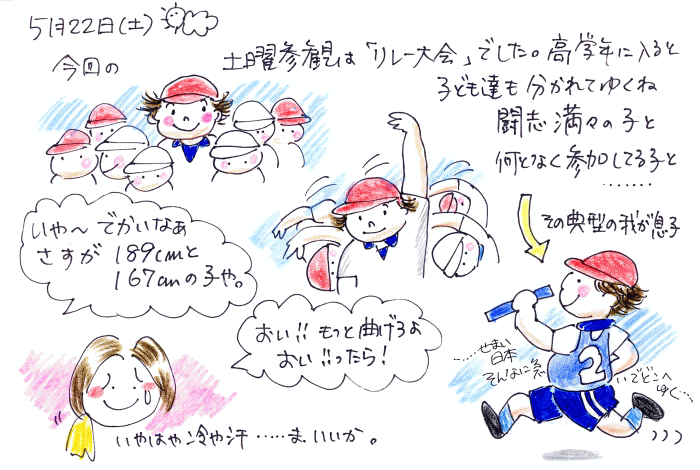 5月22日(土)
今回の 土曜参観は「リレー大会」でした。高学年に入ると
子ども達も分かれてゆくね
闘志満々の子と
何となく参加してる子と
………
その典型の我が息子
いや〜でかいなぁ
さすが 189cmと
167cmの子や。
おい!!もっと曲げろよ
おい!!ったら!
……せまい
日本
そんなに急いでどこへ
ゆく…
2
いやはや冷や汗……ま、いいか。